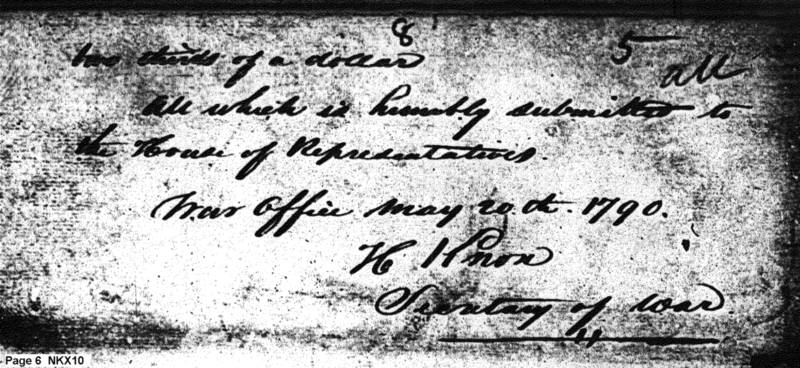 8
5
two thirds of a dollar
All
All which is humbly submitted to
the House of Representatives.
War Office May 20th. 1790.
H Knox
Secretary of War.
Page 6 NKX10